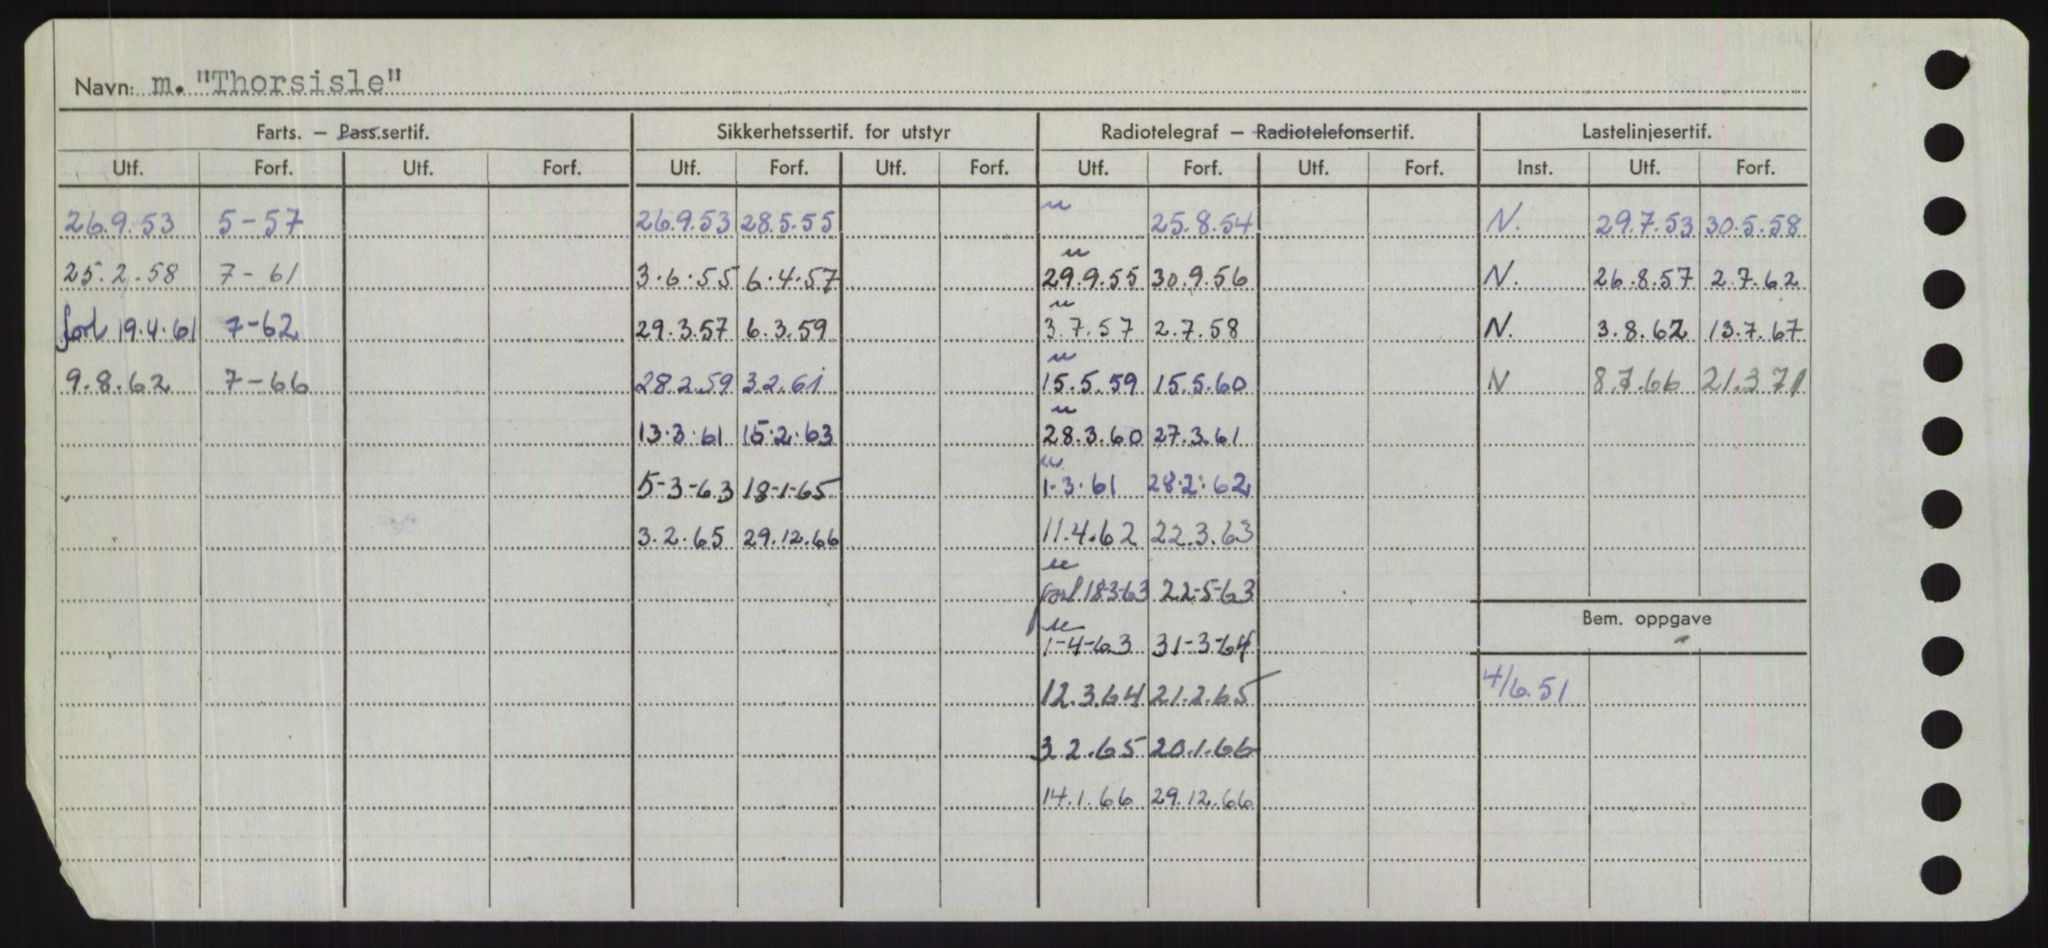 Navn: m. "Thorsisle"
Farts. — Pass.sertif. Sikkerhetssertif. for utstyr Radiotelegraf — Radiotelefonsertif. Lastelinjesertif.
Utf. Forf. Utf. Forf. Utf. Forf. Utf. Forf. Utf. Forf. Utf. Forf. Inst. Utf. Forf.
26.9.53 5-57 26.9.53 28.5.55 25.8.54 N. 29.7.53 30.5.58
25.2.58 7-61 3.6.55 6.4.57 29.9.55 30.9.56 N. 26.8.57 2.7.62
forl 19.4.61 7-62 29.3.57 6.3.59 3.7.57 2.7.58 N. 3.8.62 13.7.67
9.8.62 7-66 28.2.59 3.2.61 15.5.59 15.5.60 N 8.7.66 21.3.71
13.3.61 15.2.63 28.3.60 27.3.61
5-3-63 18-1-65 1.3.61 28.2.62
3.2.65 29.12.66 11.4.62 22.3.63
forl. 18-3-63 22-5-63
Bem. oppgave
1-4-63 31-3-64
12.3.64 21.2.65 4/6.51
3.2.65 20.1.66
14.1.66 29.12.66